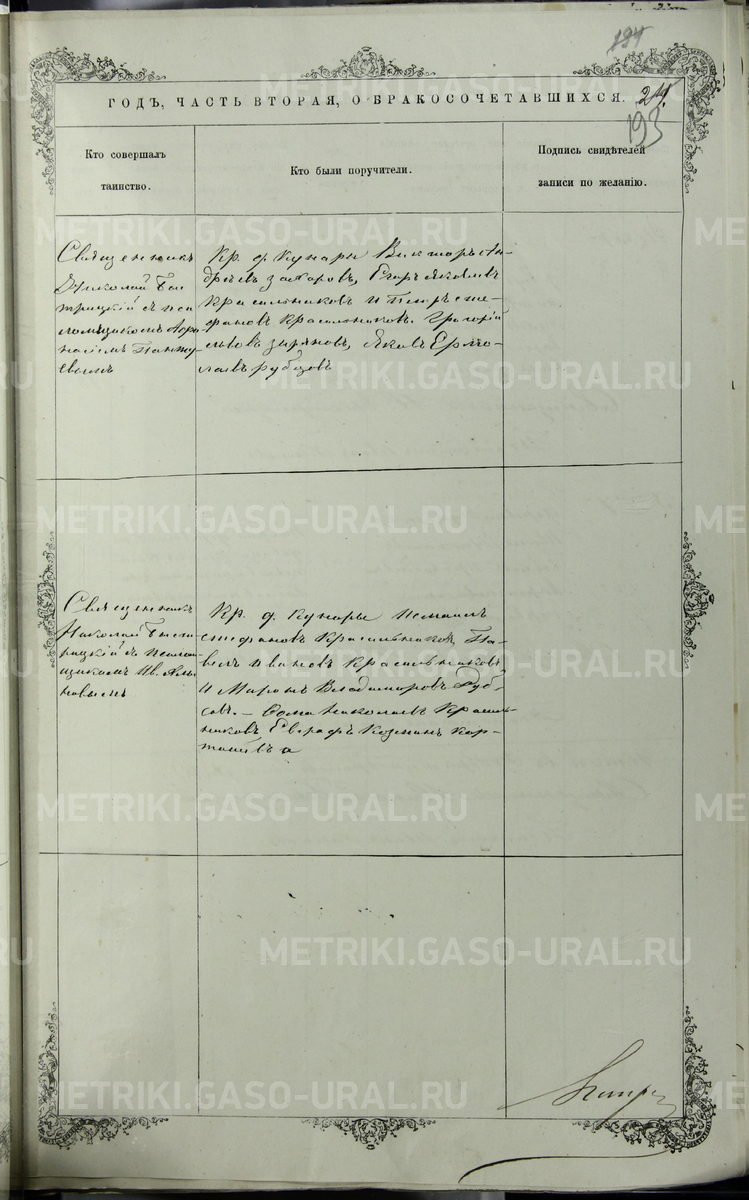 194
ГОДЪ, ЧАСТЬ ВТОРАЯ, О БРАКОСОЧЕТАВШИХСЯ. 24.
193
Кто совершалъ
таинство.
Кто были поручители.
Подпись свидѣтелей
записи по желанію.
Священникъ
Николай Быс
трицкій съ пса
ломщикомъ Аѳа
насіемъ
евымъ
Кр. д. Кунары Викторъ Ан-
дреевъ Захаровъ, Егоръ Яковлевъ
Красильниковъ и Петръ Сте-
фановъ Красильниковъ. Григорій
Зыряновъ, Яковъ Ермо-
лаевъ Рубцовъ
Священникъ
Николай Быст
рицкій съ псалом
щикомъ Ив.
новымъ
Кр. д. Кунары
Стефановъ Красильниковъ, Па-
велъ Ивановъ Красильниковъ
и Владиміровъ Руб-
совъ. — Ѳома Николаевъ Красиль
никовъ, Евграфъ Козминъ
METRIKI.GASO-URAL.RU